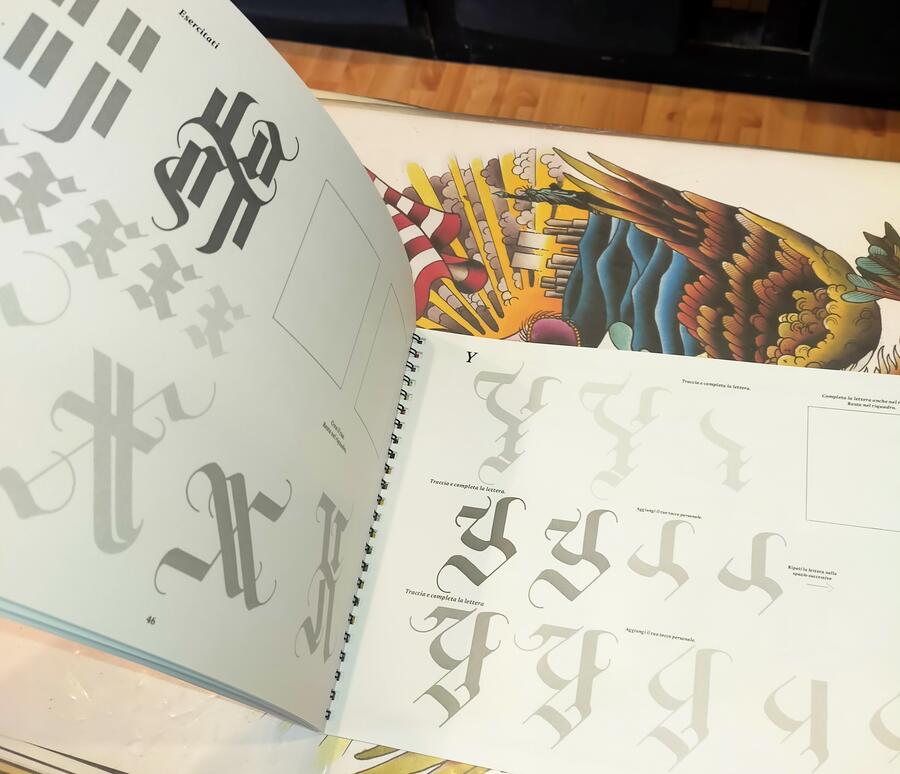 Esercitati
46
Y
Traccia e completa la lettera.
Completa la lettera anche nel
Resta nel riquadro.
Traccia e completa la lettera.
Aggiungi il tuo tocco personale.
Ripeti la lettera nello
spazio successivo
Traccia e completa la lettera
Aggiungi il tuo tocco personale.